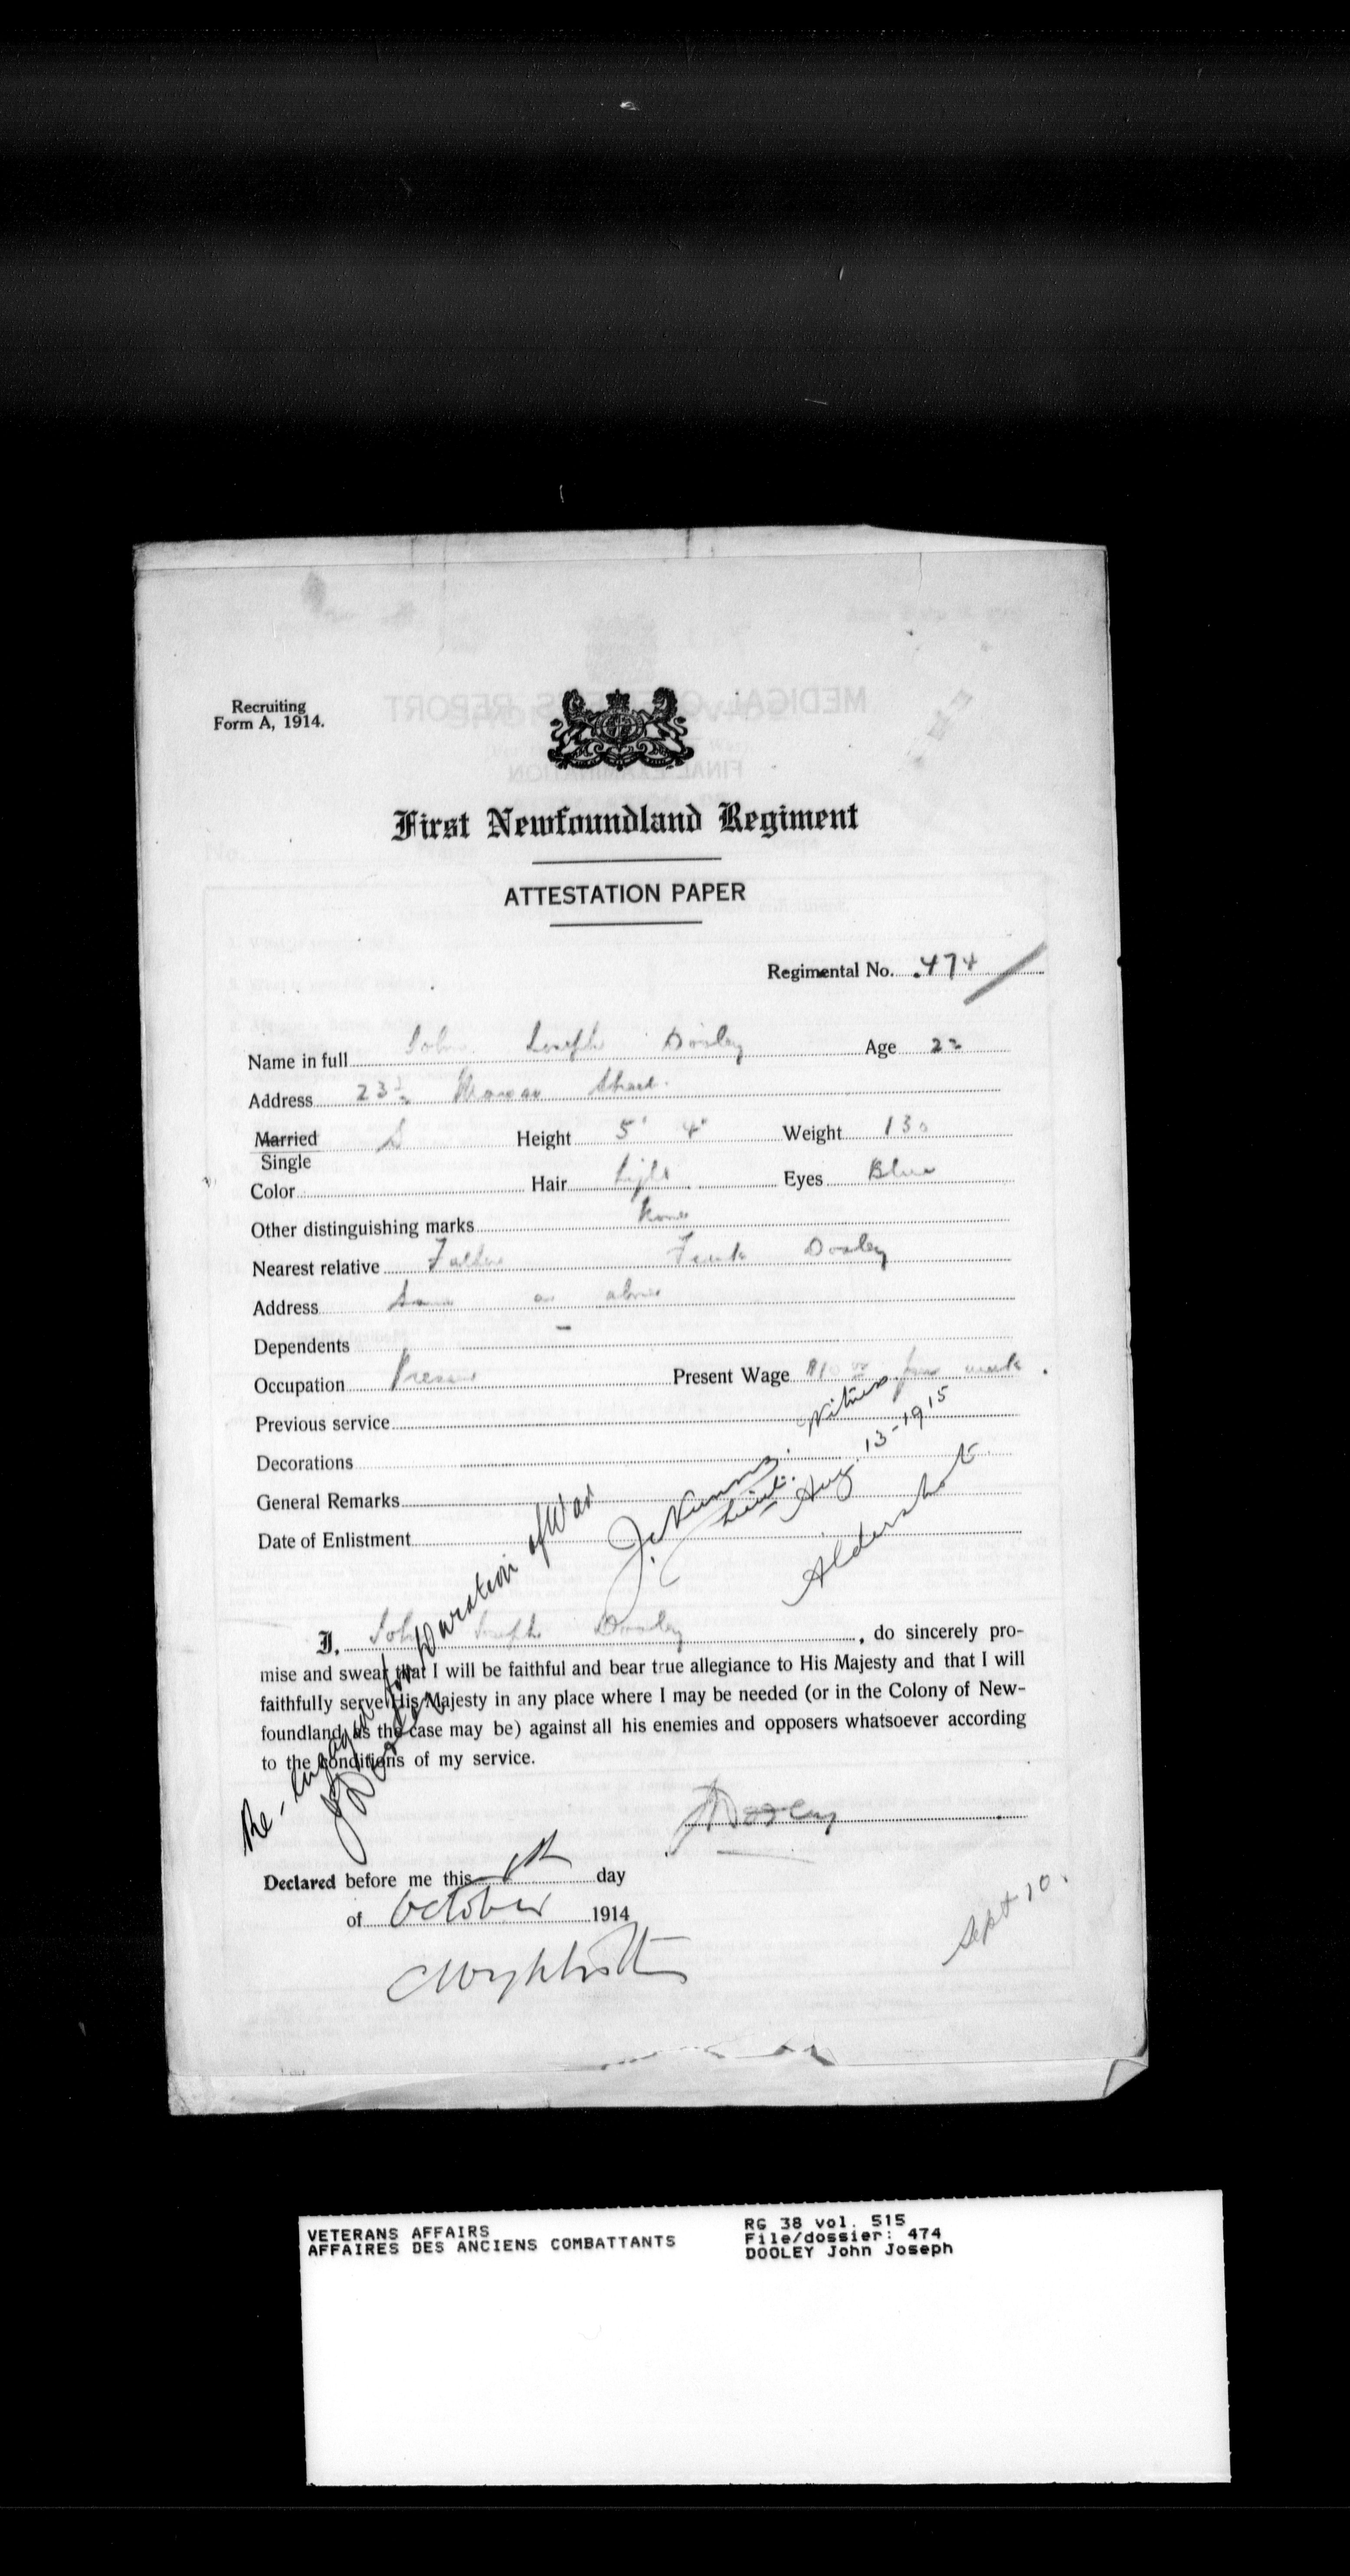 Recruiting
Form A, 1914.
First Newfoundland Regiment
ATTESTATION PAPER
Regimental No. 474
Name in full John Joseph Dooley Age 22
Address 23½ Street
Married S Height 5' 4" Weight 130
Single
Color Hair Light Eyes Blue
Other distinguishing marks None
Nearest relative Father Frank Dooley
Address Same as above
Dependents -
Occupation Presser Present Wage $10 00 per week.
Previous service
Decorations
General Remarks
Date of Enlistment
Witness
Lieut. Aug. 13-1915
Aldershot
Re-engaged for Duration of War
J Dooley
I, John Joseph Dooley, do sincerely pro-
mise and swear that I will be faithful and bear true allegiance to His Majesty and that I will
faithfully serve His Majesty in any place where I may be needed (or in the Colony of New-
foundland, as the case may be) against all his enemies and opposers whatsoever according
to the conditions of my service.
J Dooley
Declared before me this 1st day
of October 1914
Sept 10.
VETERANS AFFAIRS
AFFAIRES DES ANCIENS COMBATTANTS
RG 38 vol. 515
File/dossier: 474
DOOLEY John Joseph